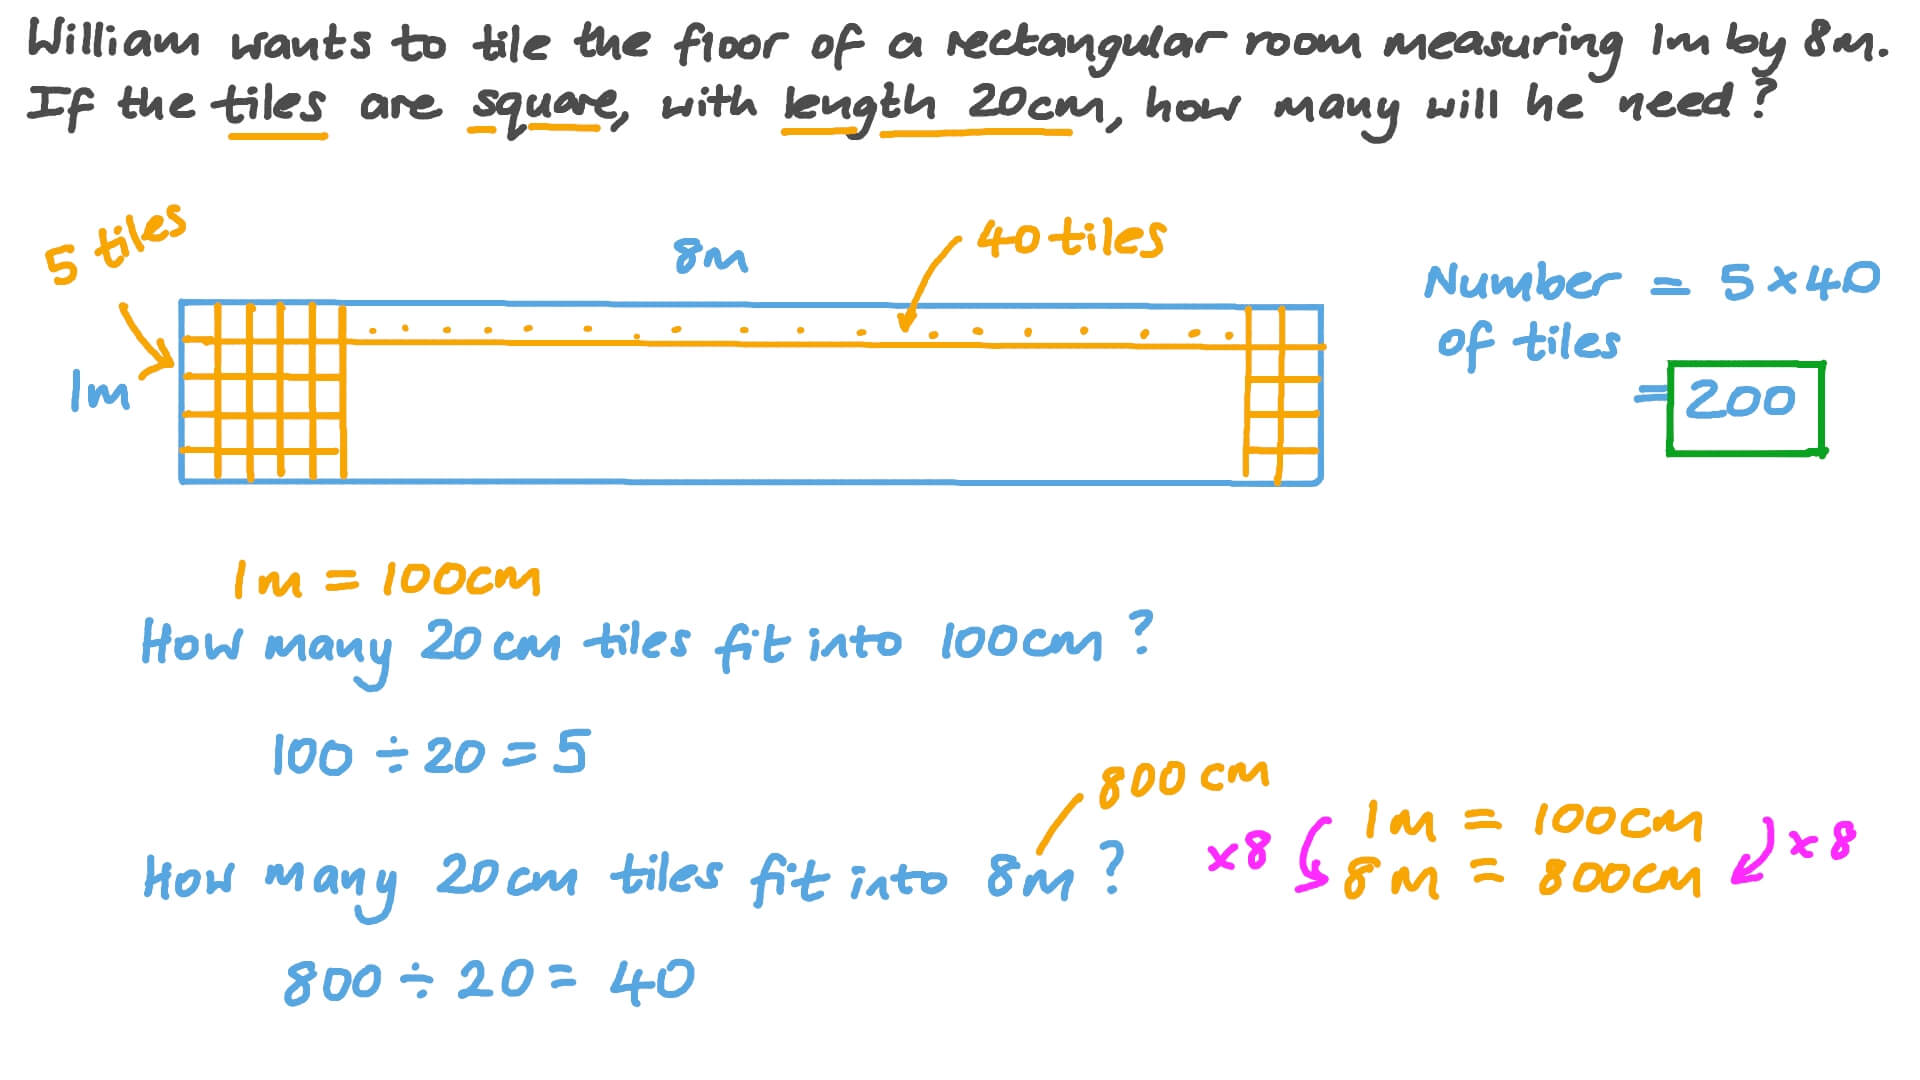 William wants to tile the floor of a rectangular room measuring 1m by 8m.
If the tiles are square, with length 20cm, how many will he need?
5 tiles
8m
40 tiles
1m
Number = 5 × 40
of tiles
= 200
1m = 100cm
How many 20cm tiles fit into 100cm?
100 ÷ 20 = 5
800 cm
How many 20cm tiles fit into 8m?
×8
1m = 100cm
8m = 800cm
×8
800 ÷ 20 = 40